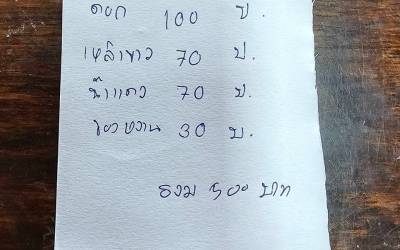 ดอก 100 บ.
เหล้าขาว 70 บ.
น้ำแดง 70 บ.
ของหวาน 30 บ.
รวม 500 บาท